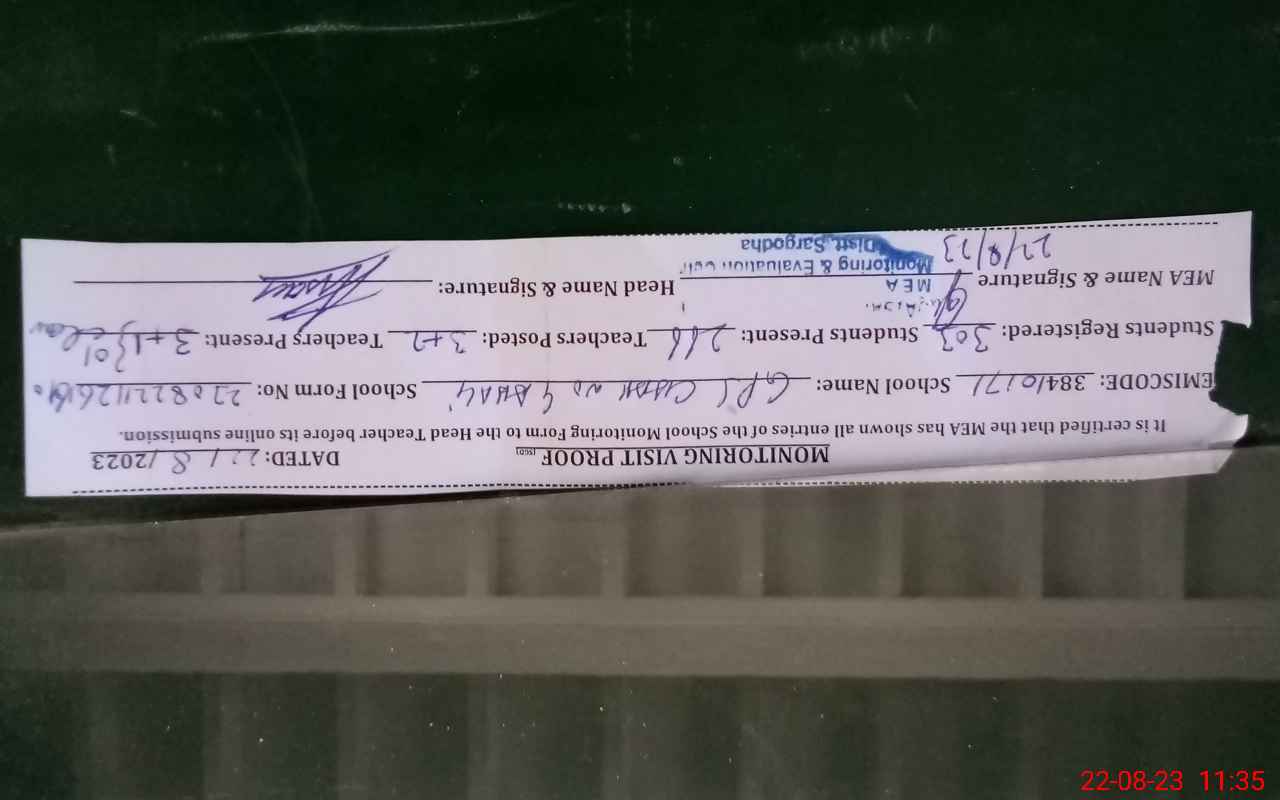 MONITORING VISIT PROOF (SGD) DATED: 22/8/2023
It is certified that the MEA has shown all entries of the School Monitoring Form to the Head Teacher before its online submission.
EMISCODE: 38410171 School Name: GPS CHAH NO 4 School Form No:
Students Registered: 303 Students Present: 266 Teachers Posted: 3+2 Teachers Present: 3+1
MEA Name & Signature Head Name & Signature:
MEA
Monitoring & Evaluation Cell
Distt. Sargodha
22/8/23
22-08-23 11:35